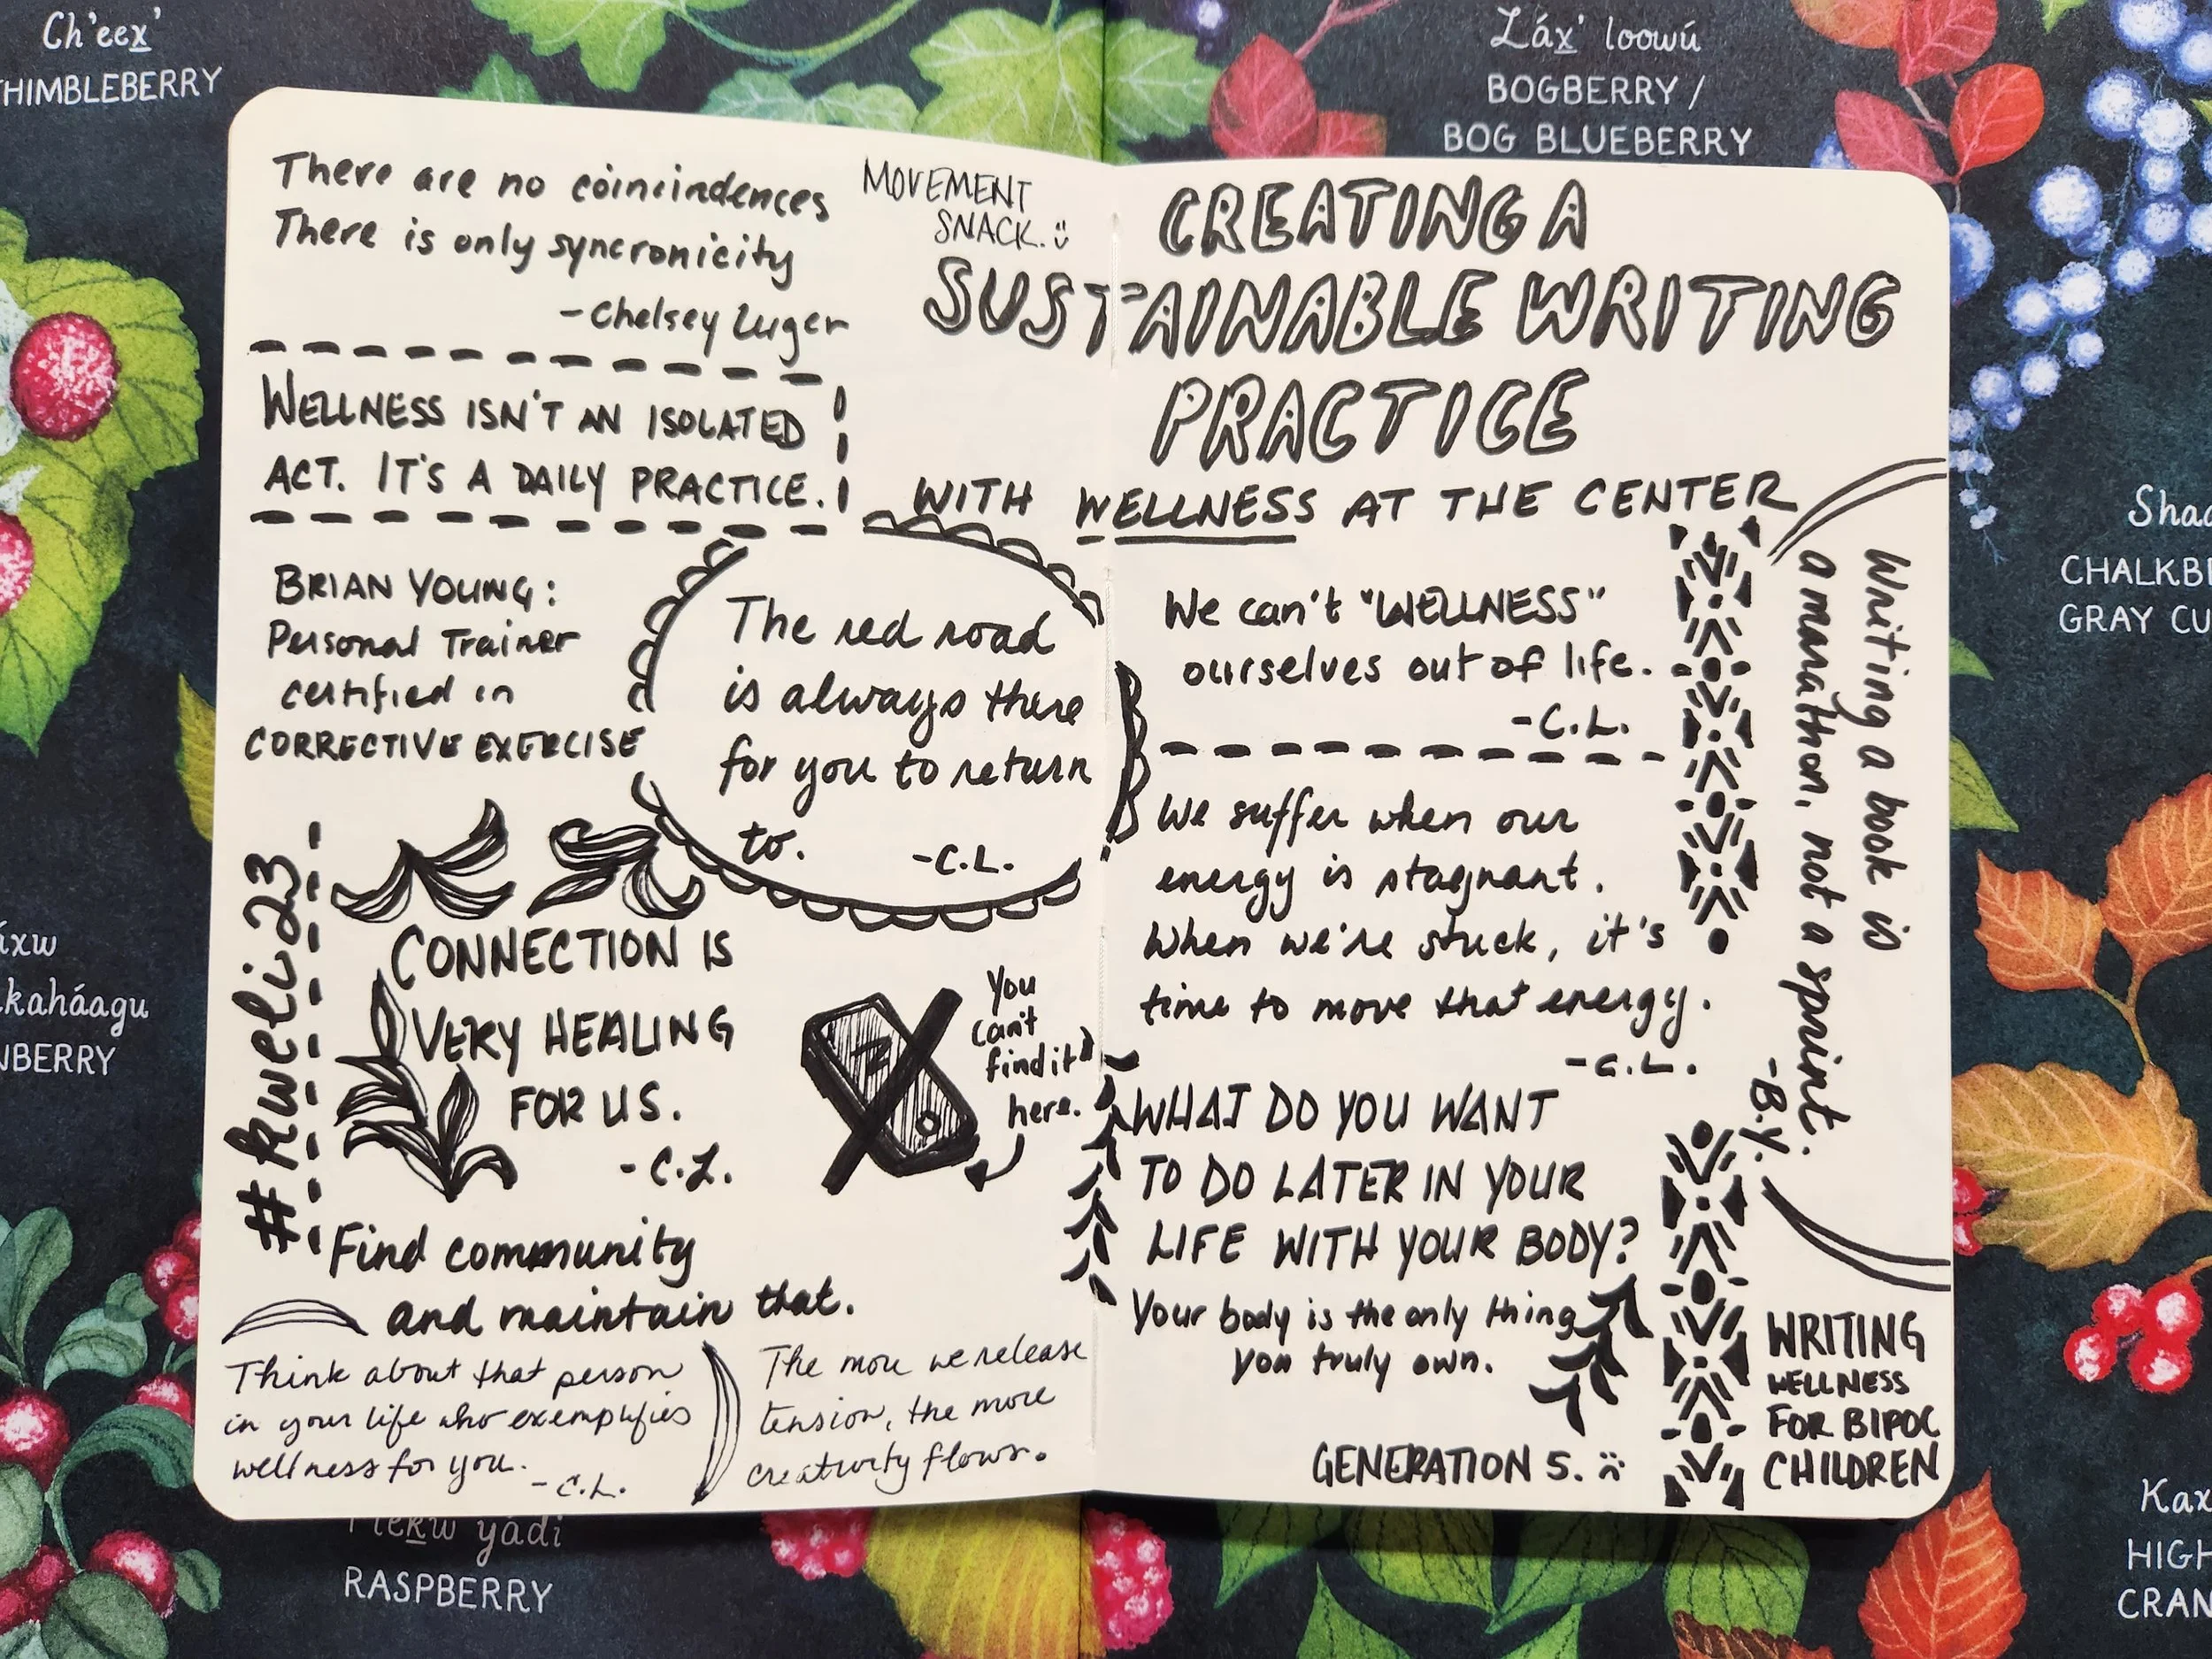 Ch'eex̲'
THIMBLEBERRY
Láx̲' loowú
BOGBERRY /
BOG BLUEBERRY
There are no coincindences
There is only syncronicity
-Chelsey Luger
MOVEMENT
SNACK.
CREATING A
SUSTAINABLE WRITING
PRACTICE
WITH WELLNESS AT THE CENTER
WELLNESS ISN'T AN ISOLATED
ACT. IT'S A DAILY PRACTICE.
BRIAN YOUNG:
Personal Trainer
certified in
CORRECTIVE EXERCISE
The red road
is always there
for you to return
to.
-C.L.
#kweli23
CONNECTION IS
VERY HEALING
FOR US.
-C.L.
You
can't
find it
here.
Find community
and maintain that.
Think about that person
in your life who exemplifies
wellness for you.
-C.L.
The more we release
tension, the more
creativity flows.
We can't "WELLNESS"
ourselves out of life.
-C.L.
We suffer when our
energy is stagnant.
When we're stuck, it's
time to move that energy.
-C.L.
WHAT DO YOU WANT
TO DO LATER IN YOUR
LIFE WITH YOUR BODY?
Your body is the only thing
you truly own.
GENERATION 5.
Writing a book is
a marathon, not a sprint.
-B.Y.
WRITING
WELLNESS
FOR BIPOC
CHILDREN
Shaa
CHALKBE
GRAY CU
áxw
kaháagu
NBERRY
Tlek̲w yádi
RASPBERRY
Kax
HIGH
CRAN